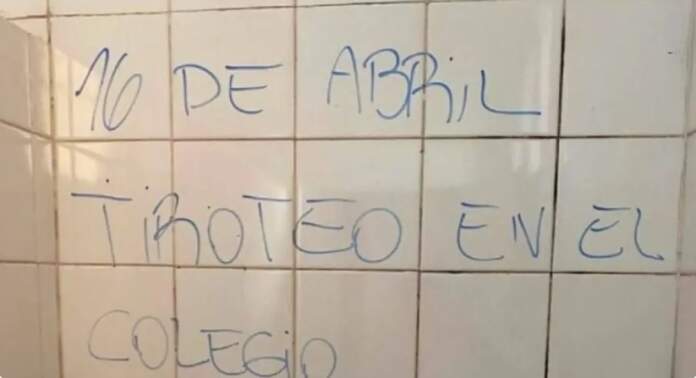 16 DE ABRIL
TIROTEO EN EL
COLEGIO